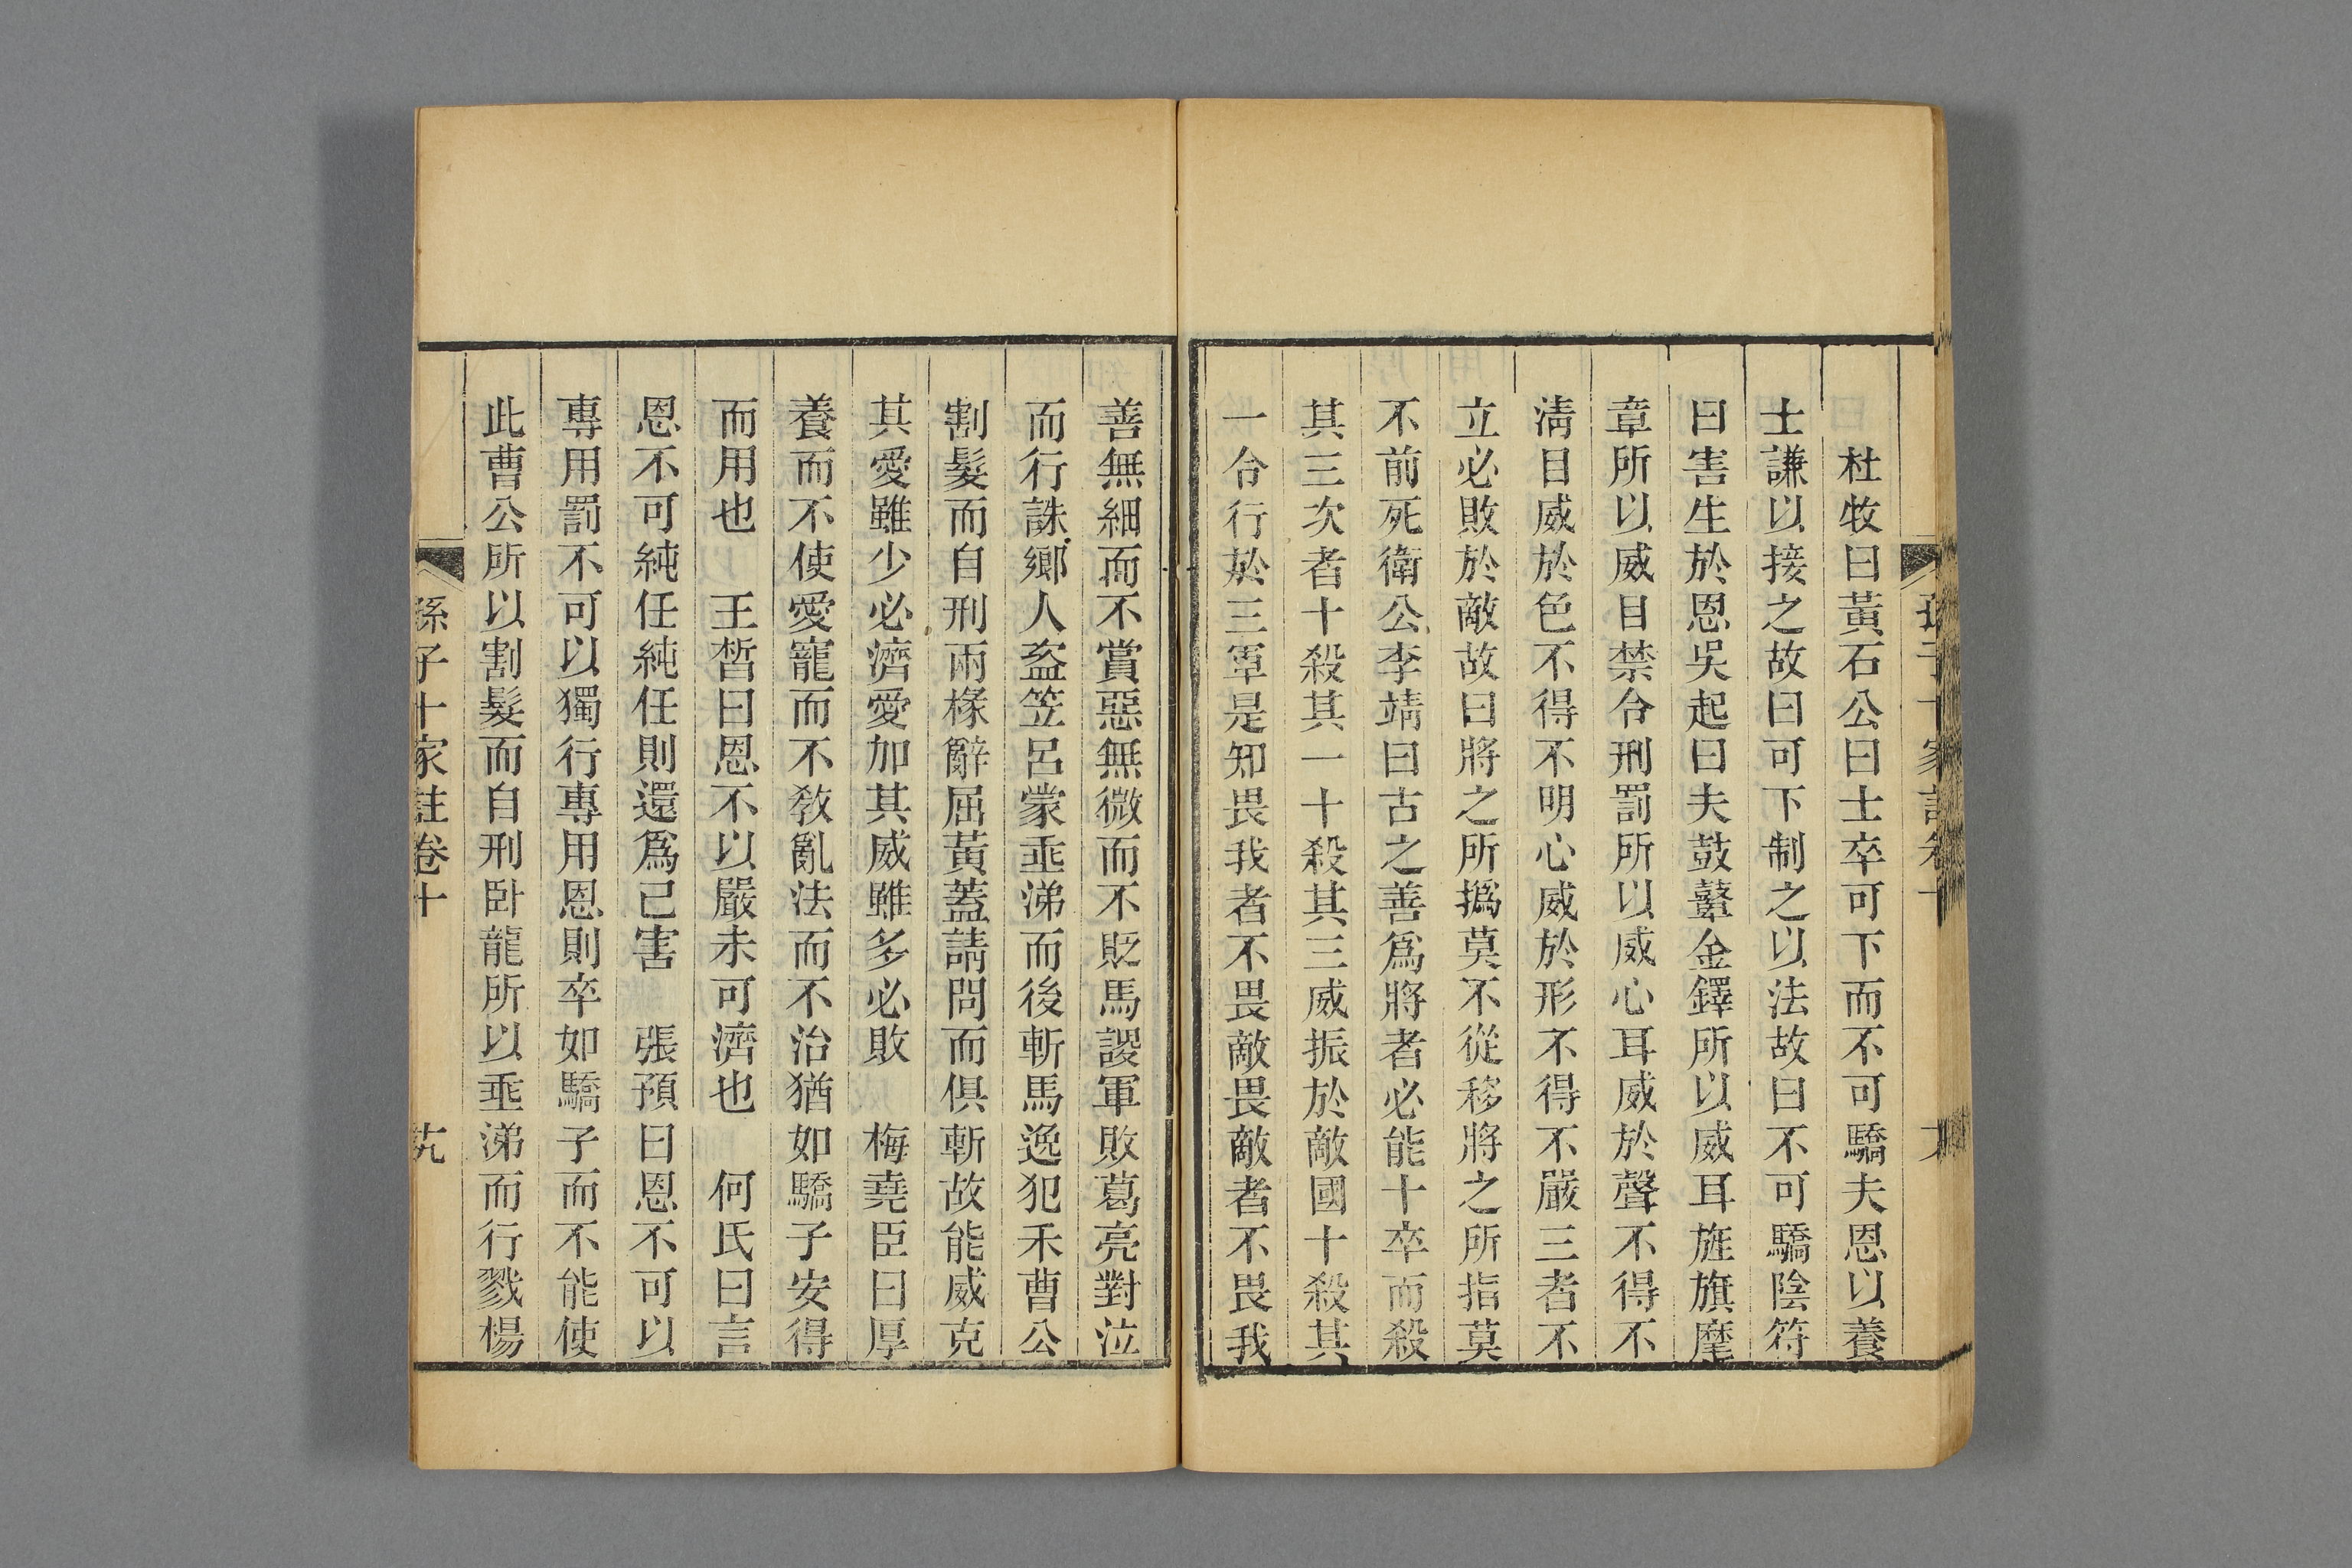 杜牧曰黃石公曰士卒可下而不可驕夫恩以養
士謙以接之故曰可下制之以法故曰不可驕陰符
曰害生於恩吳起曰夫鼓鼙金鐸所以威耳旌旗麾
章所以威目禁令刑罰所以威心耳威於聲不得不
淸目威於色不得不明心威於形不得不嚴三者不
立必敗於敵故曰將之所撝莫不從移將之所指莫
不前死衛公李靖曰古之善爲將者必能十卒而殺
其三次者十殺其一十殺其三威振於敵國十殺其
一令行於三軍是知畏我者不畏敵畏敵者不畏我
善無細而不賞惡無微而不貶馬謖軍敗葛亮對泣
而行誅鄉人盜笠呂蒙垂涕而後斬馬逸犯禾曹公
割髮而自刑兩掾辭屈黃蓋請問而俱斬故能威克
其愛雖少必濟愛加其威雖多必敗 梅堯臣曰厚
養而不使愛寵而不敎亂法而不治猶如驕子安得
而用也 王晳曰恩不以嚴未可濟也 何氏曰言
恩不可純任純任則還爲己害 張預曰恩不可以
專用罰不可以獨行專用恩則卒如驕子而不能使
此曹公所以割髮而自刑臥龍所以垂涕而行戮楊
孫子十家註卷十